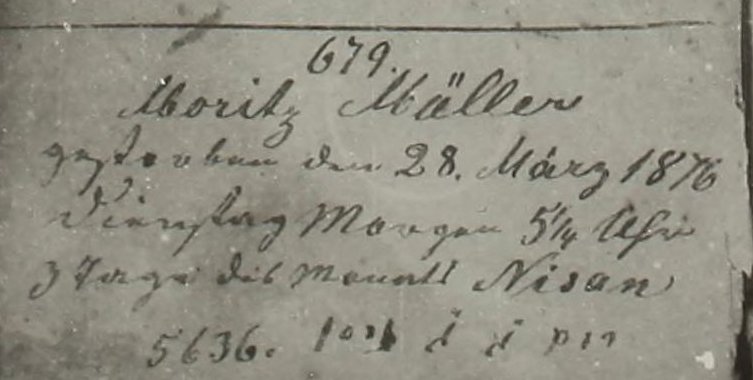 679.
Moritz Mäller
gestorben den 28. März 1876
Dienstag Morgen 5¼ Uhr
3 Tage des Monats Nisan
5636. יום ג׳ ג׳ ניסן